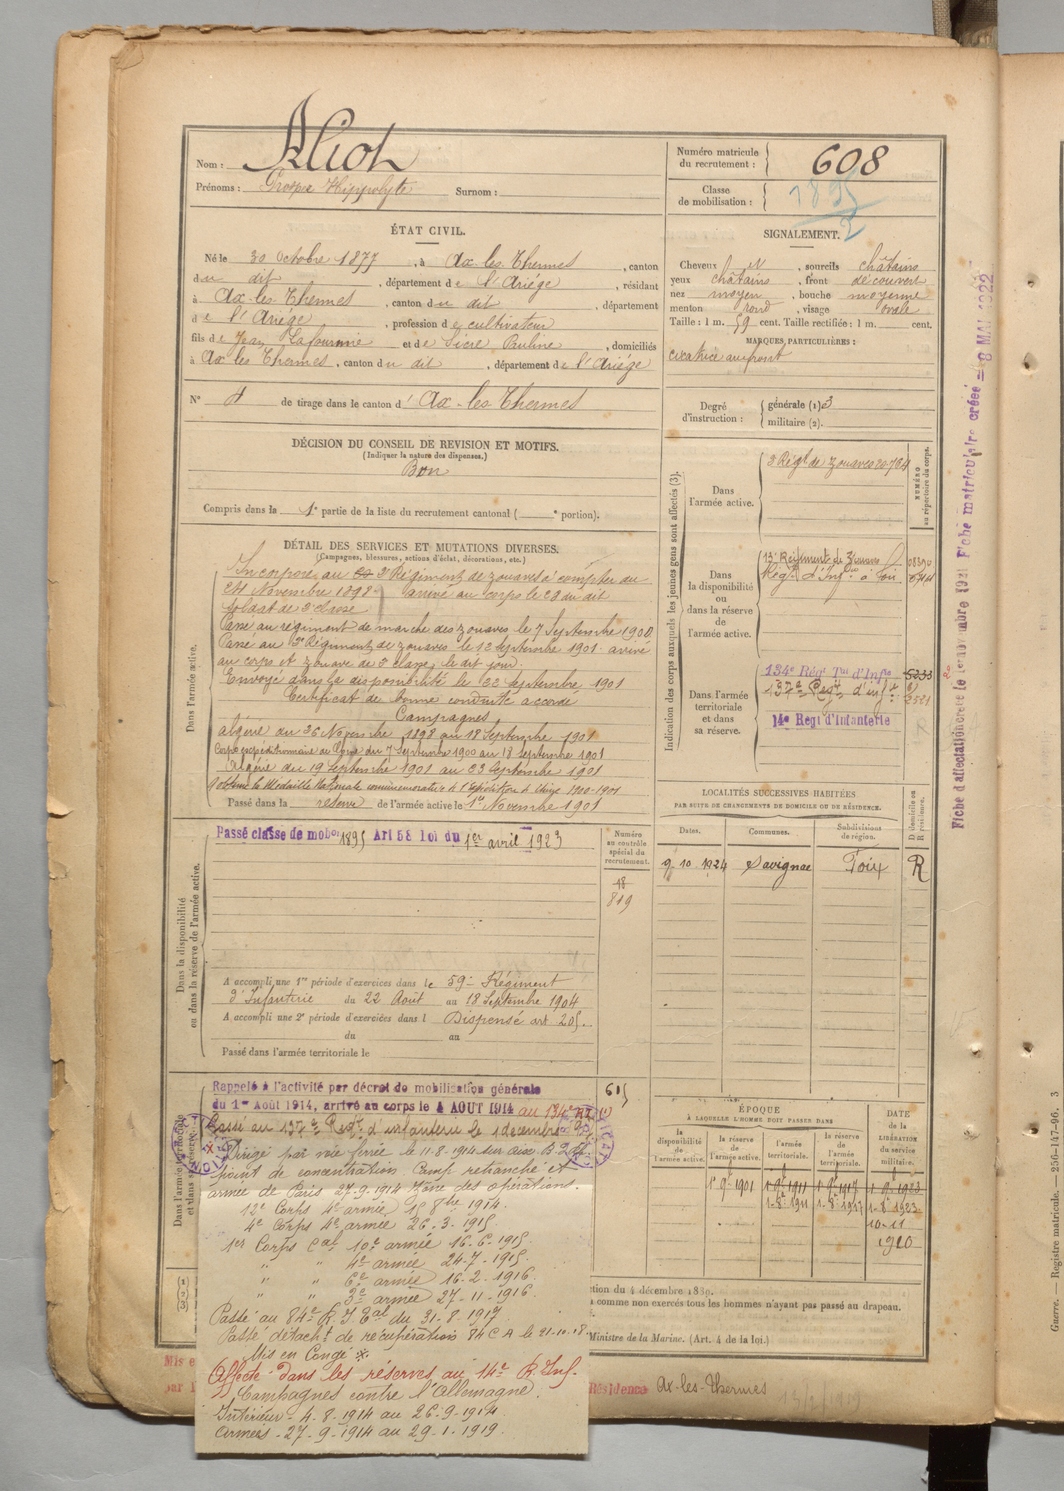 Nom : Alioh
Prénoms : Prosper Hippolyte Surnom :
Numéro matricule du recrutement : 608
Classe de mobilisation : 1895
2
ÉTAT CIVIL.
Né le 30 Octobre 1877, à Ax les Thermes, canton
du dit, département de l'Ariége, résidant
à Ax-les-Thermes, canton du dit, département
de l'Ariége, profession de cultivateur
fils de Jean Lafourmie et de Sicre Pauline, domiciliés
à Ax les Thermes, canton du dit, département de l'Ariége
N° de tirage dans le canton d'Ax-les-Thermes
SIGNALEMENT.
Cheveux et, sourcils châtains
yeux châtains, front découvert
nez moyen, bouche moyenne
menton rond, visage ovale
Taille : 1 m. 59 cent. Taille rectifiée : 1 m. cent.
MARQUES PARTICULIÈRES :
cicatrice au front
Degré d'instruction : générale (1) 3
militaire (2).
DÉCISION DU CONSEIL DE REVISION ET MOTIFS.
(Indiquer la nature des dispenses.)
Bon
Compris dans la 1e partie de la liste du recrutement cantonal ( e portion).
DÉTAIL DES SERVICES ET MUTATIONS DIVERSES.
(Campagnes, blessures, actions d'éclat, décorations, etc.)
Dans l'armée active.
Incorporé au 3e Régiment de zouaves à compter du
24 Novembre 1898 arrivé au corps le 28 du dit
soldat de 2e classe
Passé au régiment de marche des zouaves le 7 Septembre 1900
Passé au 3e Régiment de zouaves le 12 Septembre 1901 arrivé
au corps et zouave de 2e classe le dit jour.
Envoyé dans la disponibilité le 22 Septembre 1901
Certificat de bonne conduite accordé
Campagnes
Algérie du 26 Novembre 1898 au 18 Septembre 1901
Corps expéditionnaire de Chine du 7 Septembre 1900 au 18 Septembre 1901
Algérie du 19 Septembre 1901 au 23 Septembre 1901
Obtenu la Médaille Nationale commémorative de l'Expédition de Chine 1900-1901
Passé dans la réserve de l'armée active le 1er Novembre 1901
Indication des corps auxquels les jeunes gens sont affectés (3).
NUMÉRO au répertoire du corps.
Dans l'armée active.
3 Régt de zouaves 20784
Dans la disponibilité ou dans la réserve de l'armée active.
13e Régiment de Zouaves
Régt d'Infie à Foix
Dans l'armée territoriale et dans sa réserve.
134e Régt Tal d'Infie 5233
137e Régt d'Infie 2521
14e Régt d'Infanterie
LOCALITÉS SUCCESSIVES HABITÉES
PAR SUITE DE CHANGEMENTS DE DOMICILE OU DE RÉSIDENCE.
Dates. Communes. Subdivisions de région. D domicile ou R résidence.
9. 10. 1924 Savignac Foix R
Dans la disponibilité ou dans la réserve de l'armée active.
Passé classe de mobon 1895 Art 58 loi du 1er avril 1923
Numéro au contrôle spécial du recrutement.
18
819
A accompli une 1re période d'exercices dans le 59e Régiment
d'Infanterie du 22 Août au 18 Septembre 1904
A accompli une 2e période d'exercices dans l Dispensé art 205.
du au
Passé dans l'armée territoriale le
Dans l'armée territoriale et dans sa réserve.
Rappelé à l'activité par décret de mobilisation générale
du 1er Août 1914, arrivé au corps le 4 AOUT 1914 au 134e RIT
615
Passé au 137e Régt d'infanterie le 1 décembre
Dirigé par voie ferrée le 11-8-1914 sur
point de concentration Camp retranché et
armée de Paris 27-9-1914 Zone des opérations.
12e Corps 4e armée 15 8bre 1914.
4e Corps 4e armée 26-3-1915
1er Corps Cal 10e armée 16-6-1915
" " 4e armée 24-7-1915.
" " 6e armée 16-2-1916.
" " 3e armée 27-11-1916.
Passé au 84e R.I.Tal du 31-8-1917
Passé détacht de récupération 84 C A le 21-10-18.
Mis en Congé
Affecté dans les réserves au 14e R. Inf.
Campagnes contre l'Allemagne.
Intérieur - 4-8-1914 au 26-9-1914.
Armées - 27-9-1914 au 29-1-1919.
ÉPOQUE
À LAQUELLE L'HOMME DOIT PASSER DANS
la disponibilité de l'armée active. la réserve de l'armée active. l'armée territoriale. la réserve de l'armée territoriale.
DATE de la LIBÉRATION du service militaire.
1-9-1901 1-9-1911 1-9-1917 1-9-1923
1-8-1911 1-8-1917 1-8-1923
10-11
1920
ction du 4 décembre 1889.
comme non exercés tous les hommes n'ayant pas passé au drapeau.
Ministre de la Marine. (Art. 4 de la loi.)
Mis e
par l
Résidence Ax-les-Thermes
Fiche d'affectation créée le 1er novembre 1921 Fiche matriculaire créée = 8 MAI 1922
Guerre. — Registre matricule. — 256-147-96. 3